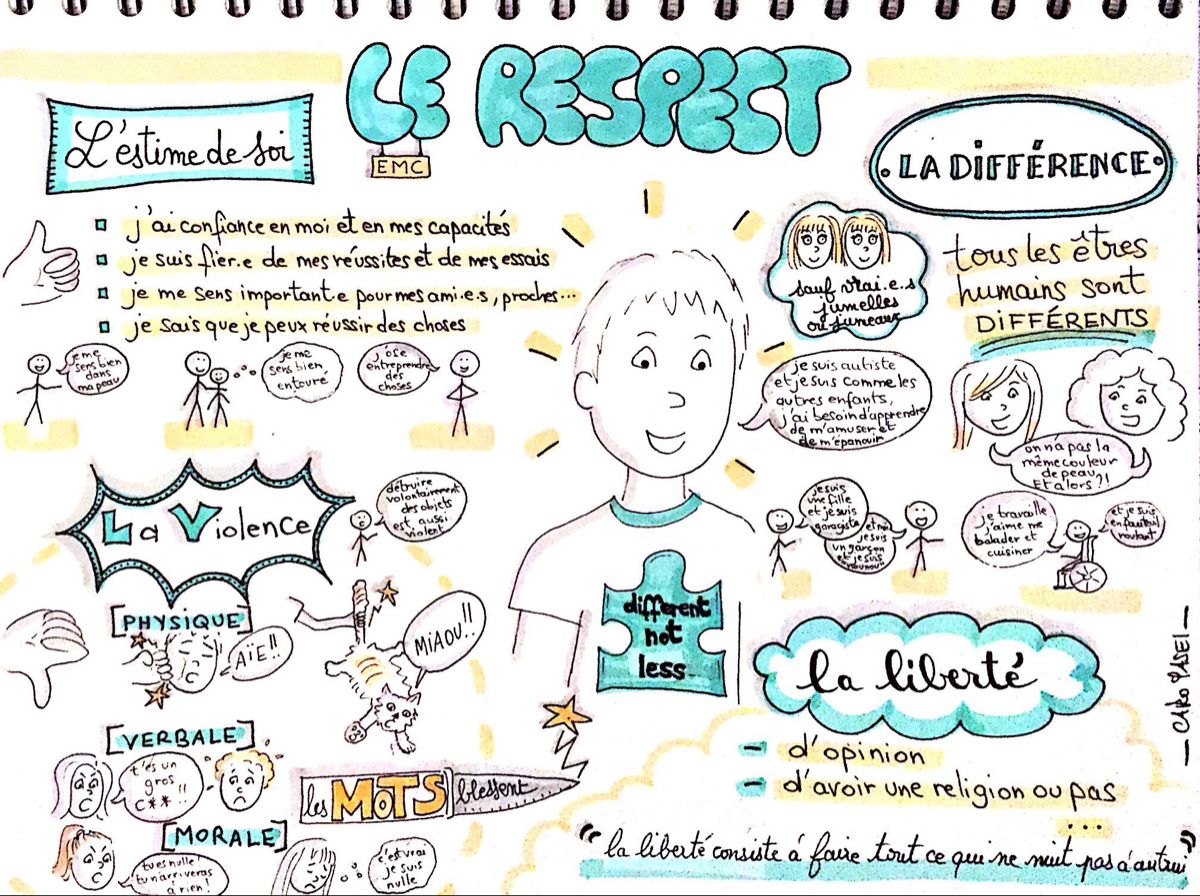 LE RESPECT
EMC
L'éstime de soi
j'ai confiance en moi et en mes capacités
je suis fier.e de mes réussites et de mes essais
je me sens important.e pour mes ami.e.s, proches...
je sais que je peux réussir des choses
je me
sens bien
dans
ma peau
je me
sens bien
entouré
j'ose
entreprendre
des
choses
LA DIFFÉRENCE
tous les êtres
humains sont
DIFFÉRENTS
sauf vrai.e.s
jumelles
ou jumeaux
je suis autiste
et je suis comme les
autres enfants,
j'ai besoin d'apprendre
de m'amuser et
de m'épanouir
on n'a pas la
même couleur
de peau,
Et alors?!
je suis
une fille
et je suis
garagiste
et moi
je suis
un garçon
et je suis
je travaille
j'aime me
balader et
cuisiner
et je suis
en fauteuil
roulant
La Violence
détruire
volontairement
des objets
est aussi
violent
[PHYSIQUE]
AÏE!!
MiAOU!!
[VERBALE]
t'es un
gros
c**!!
les MoTS blessent
[MORALE]
tu es nulle!
tu n'arriveras
à rien!
c'est vrai
je suis
nulle
different
not
less
la liberté
- d'opinion
- d'avoir une religion ou pas
...
"la liberté consiste à faire tout ce qui ne nuit pas à autrui"